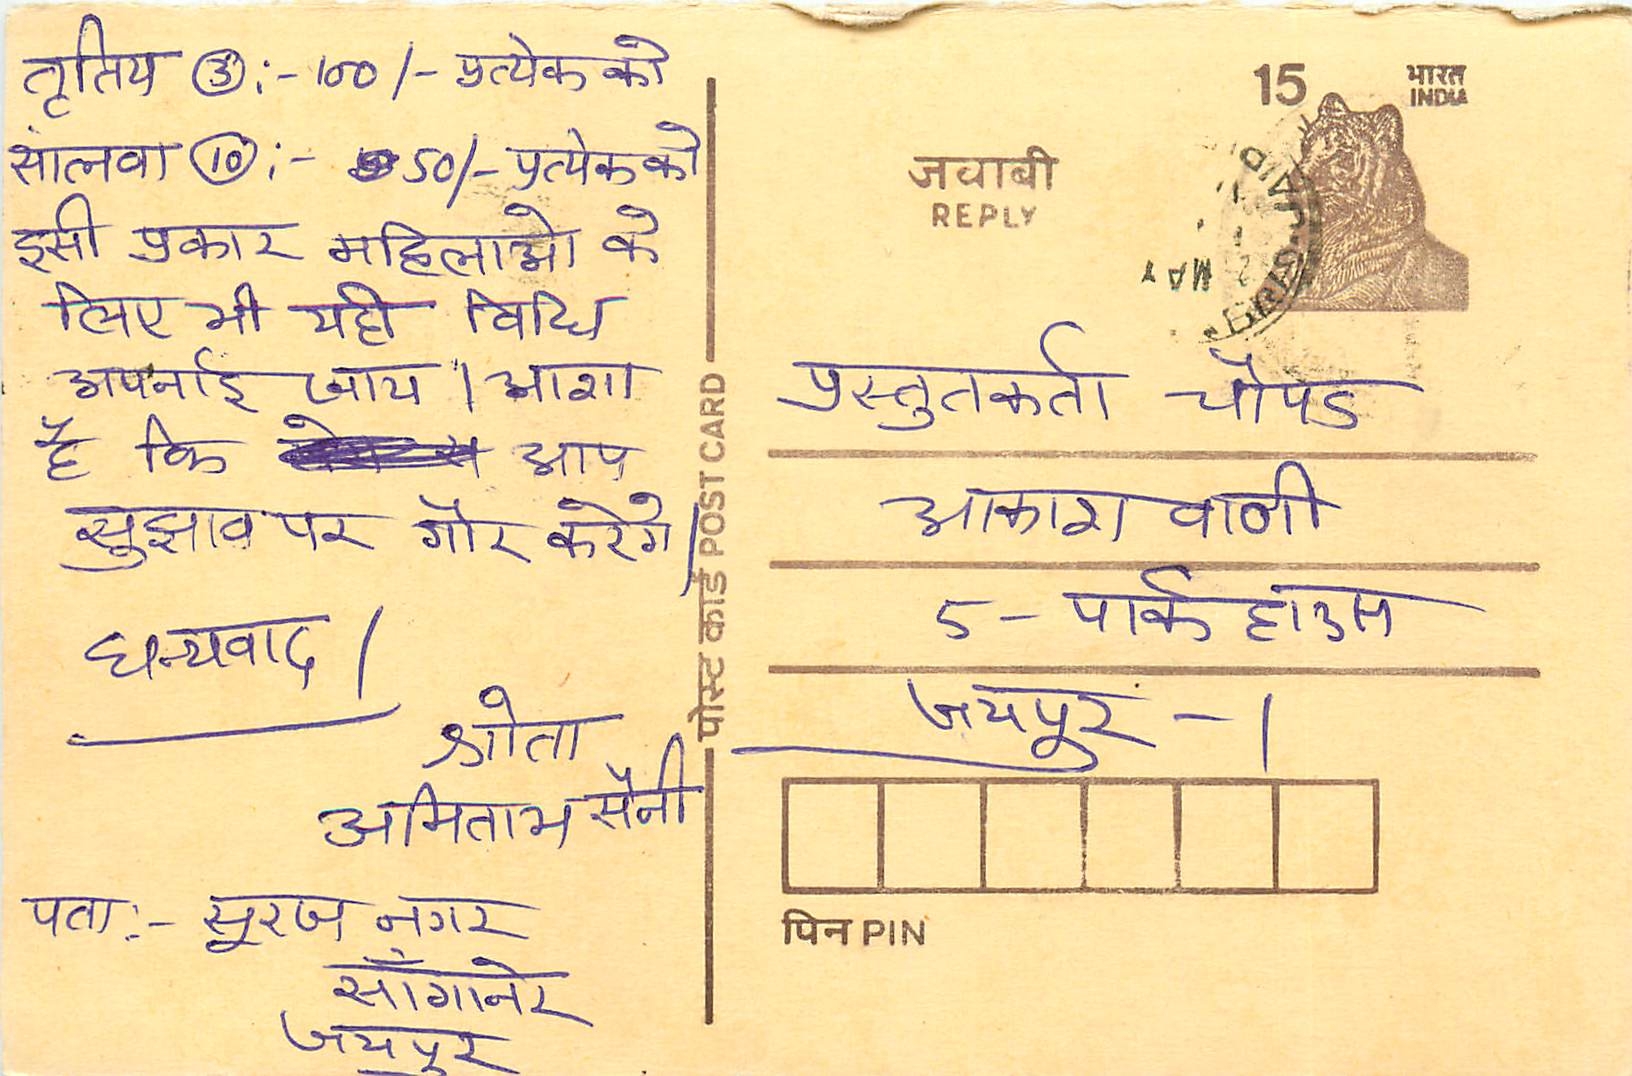 तृतिय ③:- 100/- प्रत्येक को
सांत्नवा ⑩:- 50/- प्रत्येक को
इसी प्रकार महिलाओ के
लिए भी यही विधि
अपनाई जाय । आशा
है कि आप
सुझाव पर गौर करेगे।
धन्यवाद ।
श्रोता
अमिताभ सैनी
पता:- सूरज नगर
साँगानेर
जयपुर
पोस्ट कार्ड POST CARD
15
भारत
INDIA
जवाबी
REPLY
MAY
प्रस्तुतकर्ता चौपड
आकाशवाणी
5- पार्क हाउस
जयपुर -1
पिन PIN